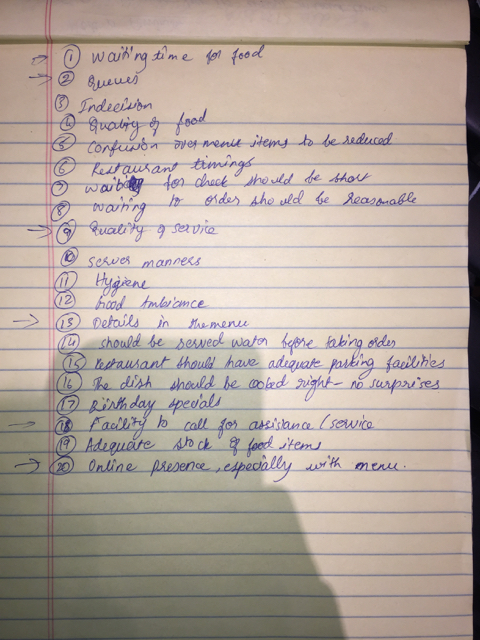 → ① Waiting time for food
→ ② Queues
③ Indecision
④ Quality of food
⑤ Confusion over menu items to be reduced
⑥ Restaurant timings
⑦ for check should be short
⑧ Waiting to order should be reasonable
→ ⑨ Quality of service
⑩ Server manners
⑪ Hygiene
⑫ Good Ambiance
→ ⑬ Details in the menu
⑭ should be served water before taking order
⑮ Restaurant should have adequate parking facilities
⑯ The dish should be cooked right - no surprises
⑰ Birthday specials
→ ⑱ Facility to call for assistance / service
⑲ Adequate stock of food items
→ ⑳ Online presence, especially with menu.